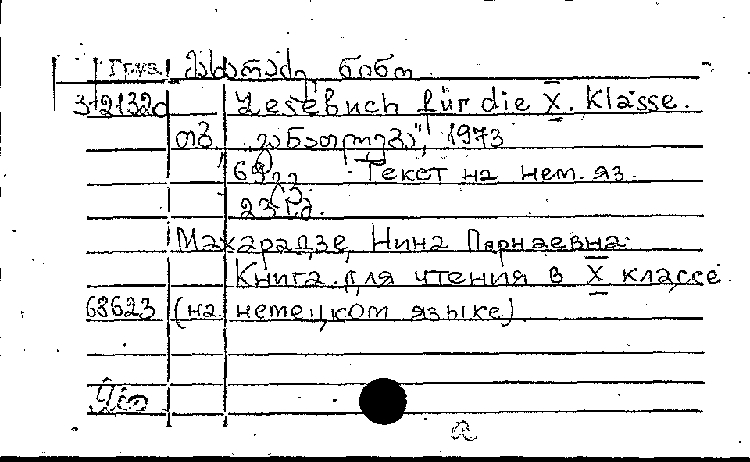 Груз. მახარაძე ნინო
3-21320 Lesebuch für die X. Klasse.
თბ. „განათლება", 1973
69
Текст на нем. яз.
23 к.
Махарадзе, Нина Парнаевна
Книга для чтения в X классе
68623 (на немецком языке)